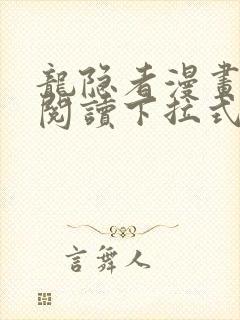 龍隐者漫畫
閱讀下拉式
言舞人